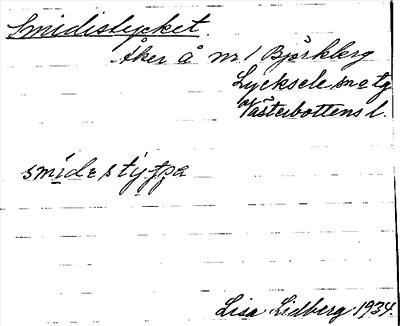 Smidistycket.
Åker å nr 1 Björkberg
Lycksele sn o tg
Västerbottens l.
smidestyppa
Lisa Lidberg 1934.